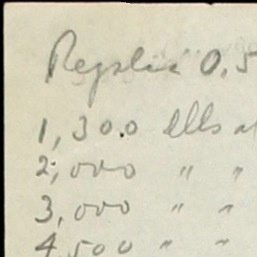 Repslie 0.5
1,300 lbs at
2,000 " "
3,000 " "
4,500 " "